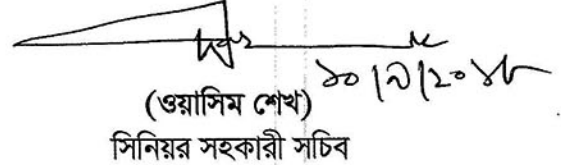 ১০/৯/২০১৮
(ওয়াসিম শেখ)
সিনিয়র সহকারী সচিব